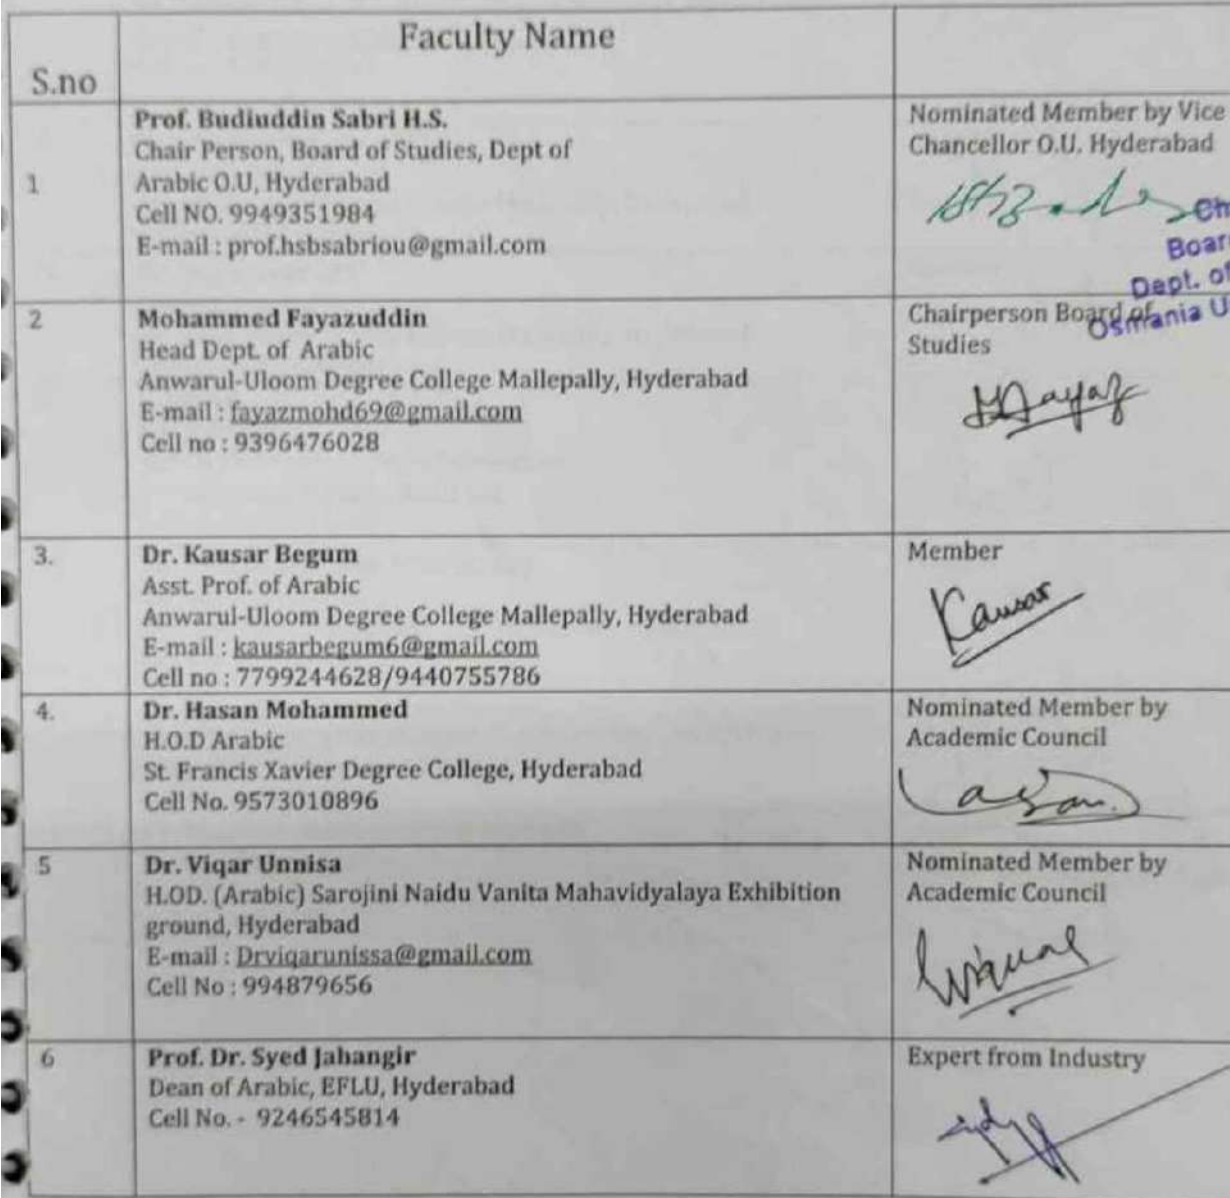 Faculty Name
S.no
1
Prof. Budiuddin Sabri H.S.
Chair Person, Board of Studies, Dept of
Arabic O.U, Hyderabad
Cell NO. 9949351984
E-mail : prof.hsbsabriou@gmail.com
Nominated Member by Vice
Chancellor O.U. Hyderabad
Ch
Boar
Dept. of
Osmania U
2
Mohammed Fayazuddin
Head Dept. of Arabic
Anwarul-Uloom Degree College Mallepally, Hyderabad
E-mail : fayazmohd69@gmail.com
Cell no : 9396476028
Chairperson Board of
Studies
3.
Dr. Kausar Begum
Asst. Prof. of Arabic
Anwarul-Uloom Degree College Mallepally, Hyderabad
E-mail : kausarbegum6@gmail.com
Cell no : 7799244628/9440755786
Member
Kausar
4.
Dr. Hasan Mohammed
H.O.D Arabic
St. Francis Xavier Degree College, Hyderabad
Cell No. 9573010896
Nominated Member by
Academic Council
5
Dr. Viqar Unnisa
H.OD. (Arabic) Sarojini Naidu Vanita Mahavidyalaya Exhibition
ground, Hyderabad
E-mail : Drviqarunissa@gmail.com
Cell No : 994879656
Nominated Member by
Academic Council
6
Prof. Dr. Syed Jahangir
Dean of Arabic, EFLU, Hyderabad
Cell No. - 9246545814
Expert from Industry